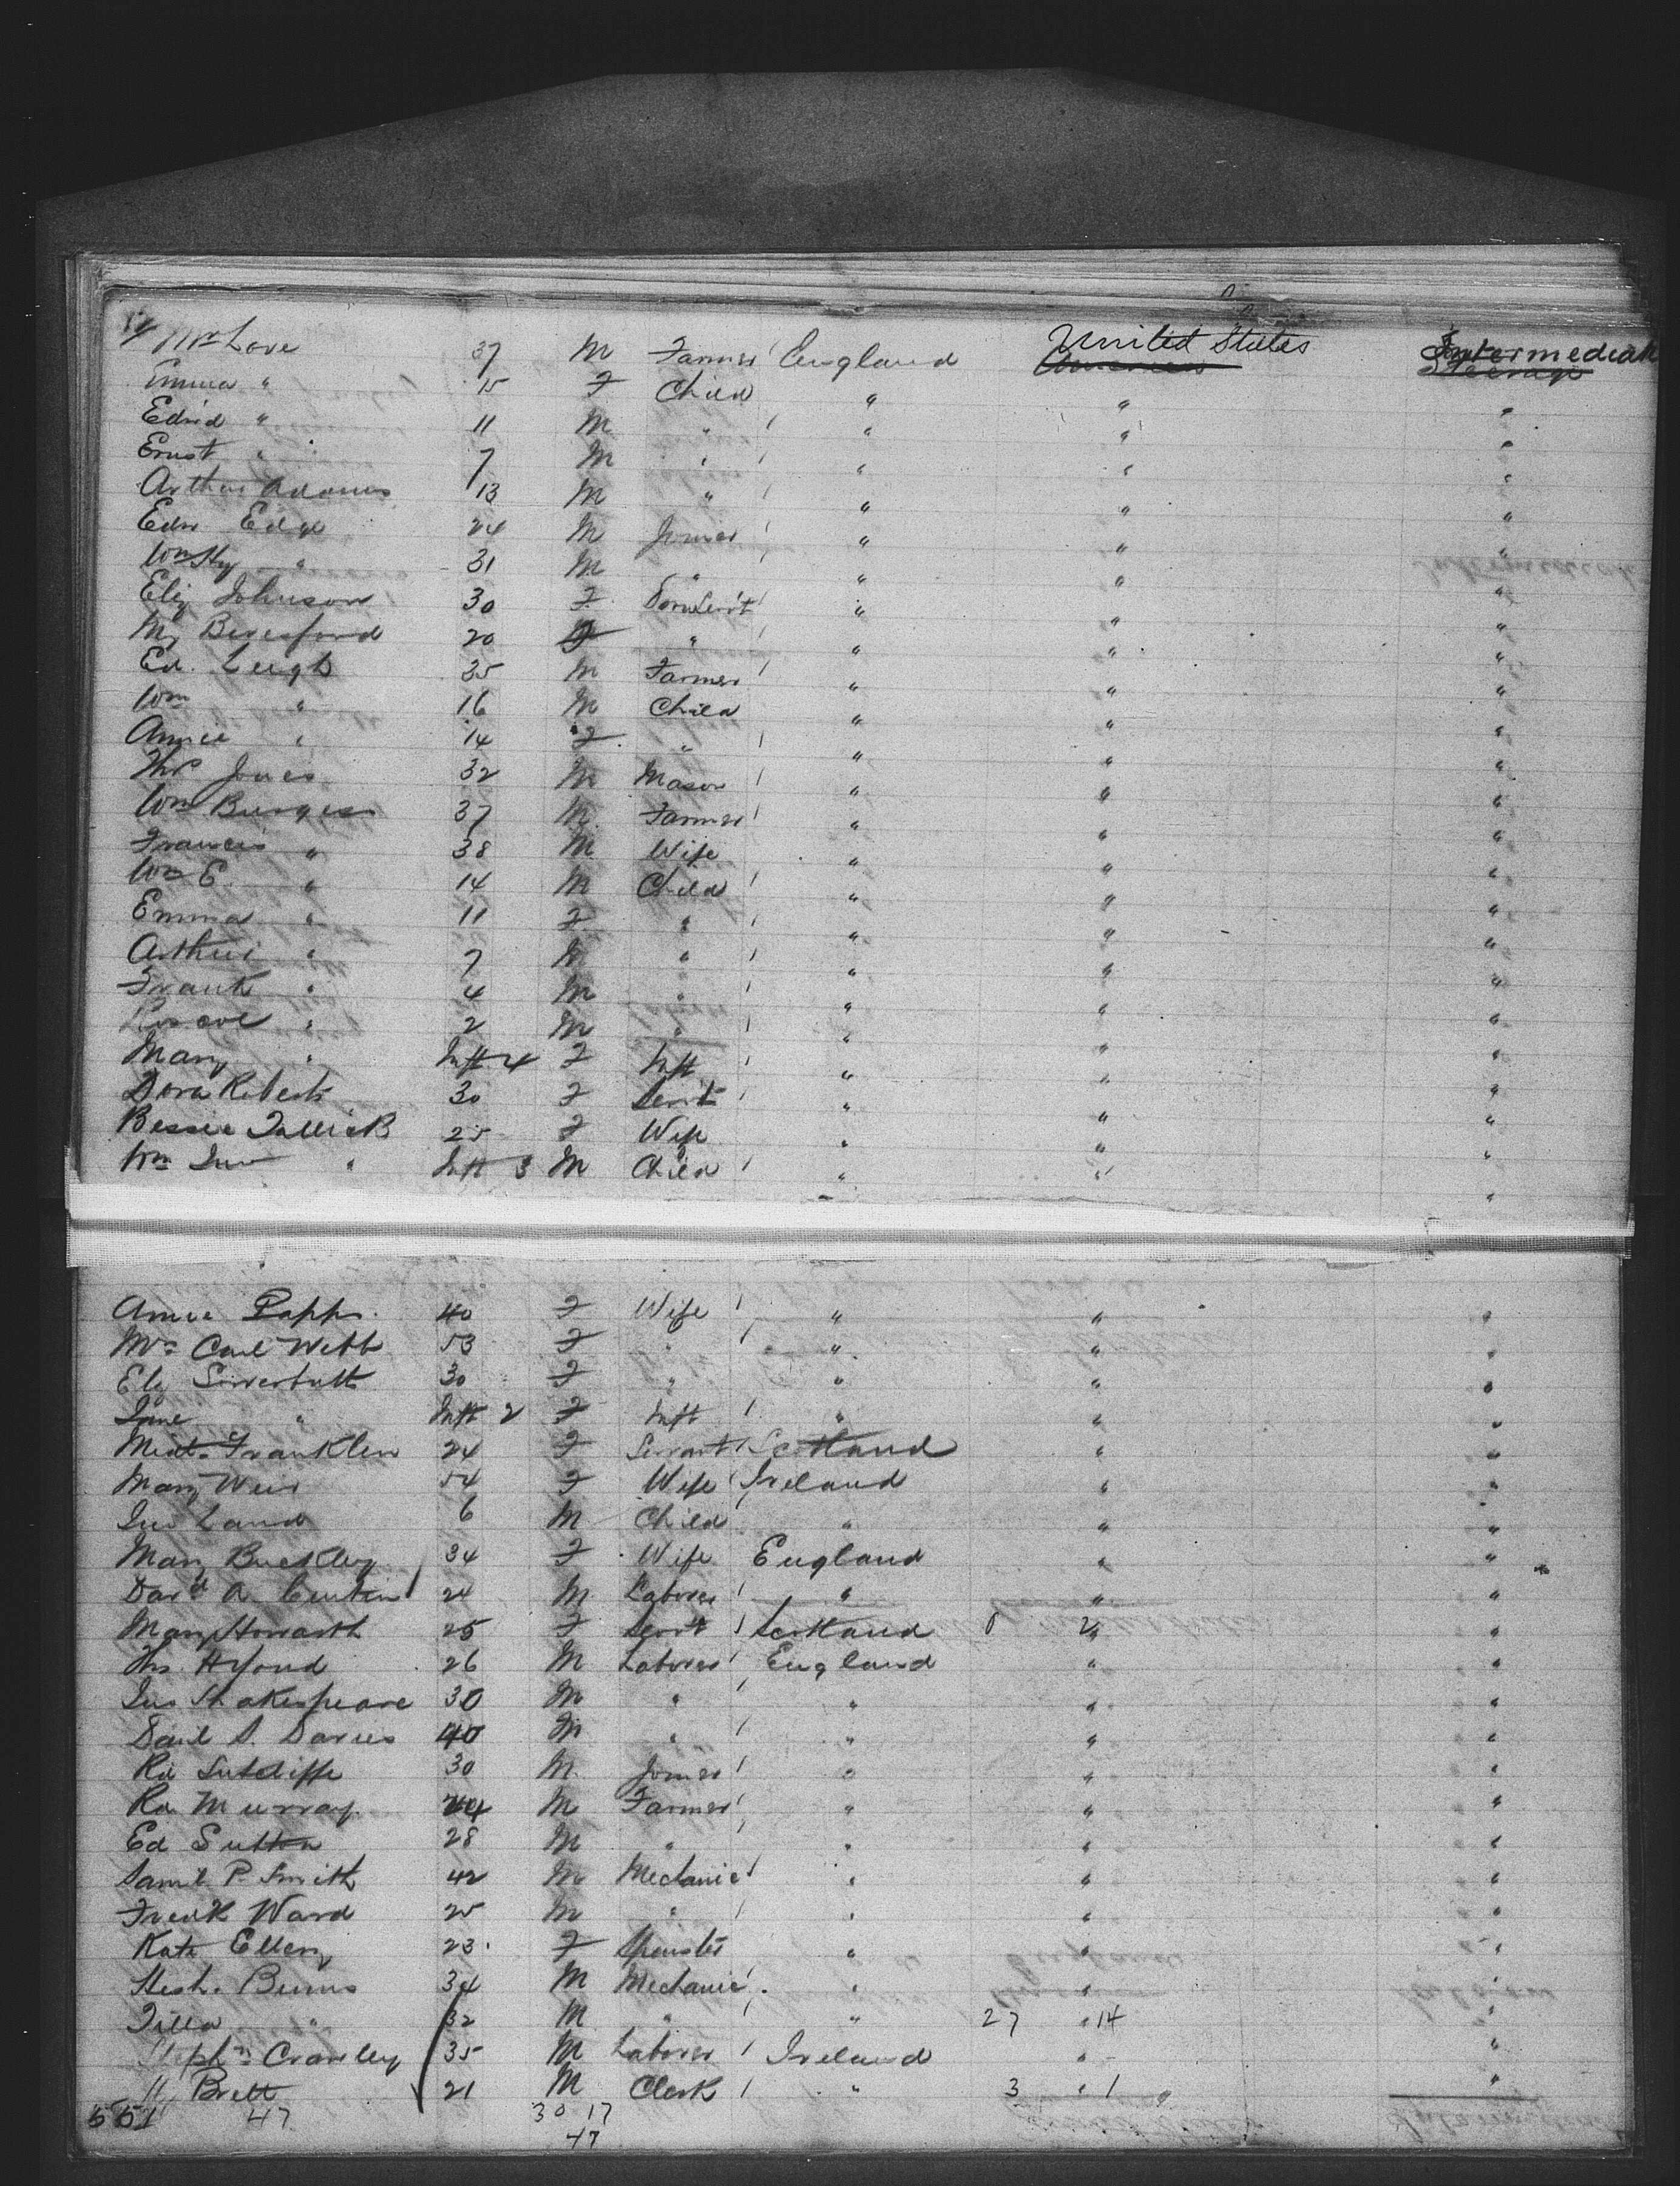 Wm Love 37 M Farmer England United States Intermediate
Emma " 15 F Child " " "
Edwd " 11 M " " " "
Ernst " 7 M " " " "
Arthur Adams 13 M " " " "
Edw Edge 24 M Joiner " " "
Wm Hy " 31 M " " " "
Eliz Johnson 30 F Dom Serv't " " "
My Beresford 20 F " " " "
Ed. Leigh 35 M Farmer " " "
Wm " 16 M Child " " "
Annie " 14 F " " " "
Thos Jones 32 M Mason " " "
Wm Burgess 37 M Farmer " " "
Francis " 38 M Wife " " "
Wm E. " 14 M Child " " "
Emma " 11 F " " " "
Arthur " 7 M " " " "
Frank " 4 M " " " "
Roscoe " 2 M " " " "
Mary " Inft 4 F Inft " " "
Dora Roberts 30 F Servt " " "
Bessie 25 F Wife " " "
Wm Jno " Inft 3 M Child " " "
Annie Papps 40 F Wife " " "
Mrs Carl Webb 53 F " " " "
Elz 30 F " " " "
Jane " Inft 2 F Inft " " "
Franklin 24 F Servant Scotland " "
Mary Weir 54 F Wife Ireland " "
Jno Land 6 M Child " " "
Mary Buckley 34 F Wife England " "
Davd A. 24 M Laborer " " "
Mary Howarth 25 F Servt Scotland " "
Thos 26 M Laborer England " "
Jno Shakespeare 30 M " " " "
Danl S. Davies 40 M " " " "
Rd Sutcliffe 30 M Joiner " " "
Rd Murray 24 M Farmer " " "
Ed Sutton 28 M " " " "
Saml P. Smith 42 M Mechanic " " "
Fredk Ward 25 M " " " "
Kate Ellery 23 F Spinster " " "
Burns 34 M Mechanic " " "
" 32 M " " 27 " 14 "
Stephn Crawley 35 M Laborer Ireland " "
H. Brett 21 M Clerk " 3 " 1 "
551 47 30 17
47